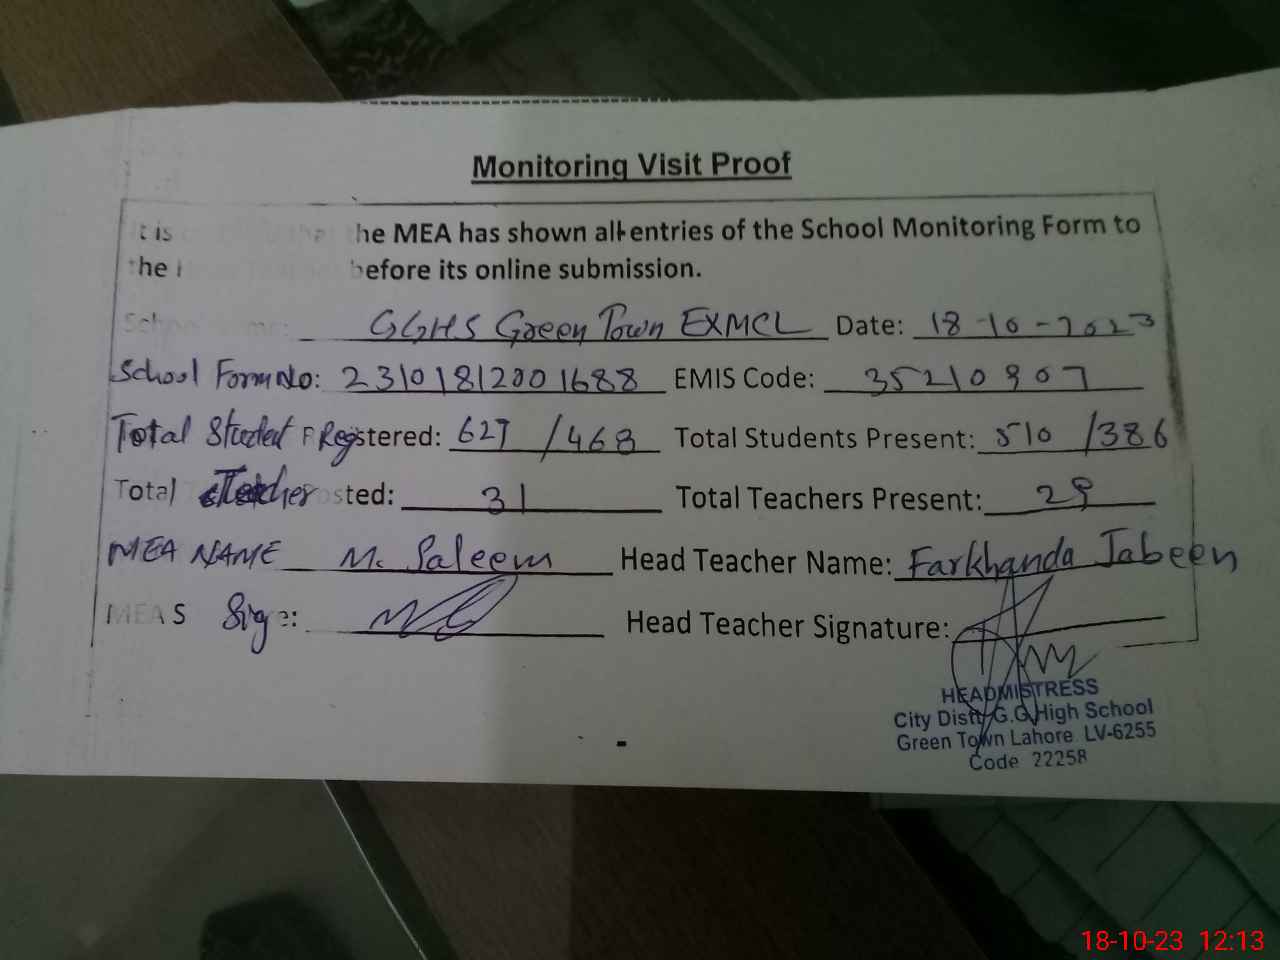 Monitoring Visit Proof
It is that the MEA has shown all entries of the School Monitoring Form to
the before its online submission.
School Name: GGHS Green Town EXMCL Date: 18-10-2023
School Form No: 23101812001688 EMIS Code: 35210907
Total Student Registered: 627 /468 Total Students Present: 510 /386
Total Teacher osted: 31 Total Teachers Present: 29
MEA NAME M. Saleem Head Teacher Name: Farkhanda Jabeen
MEA S Sig e: Head Teacher Signature:
HEADMISTRESS
City Distt. G.G. High School
Green Town Lahore LV-6255
Code 22258
18-10-23 12:13